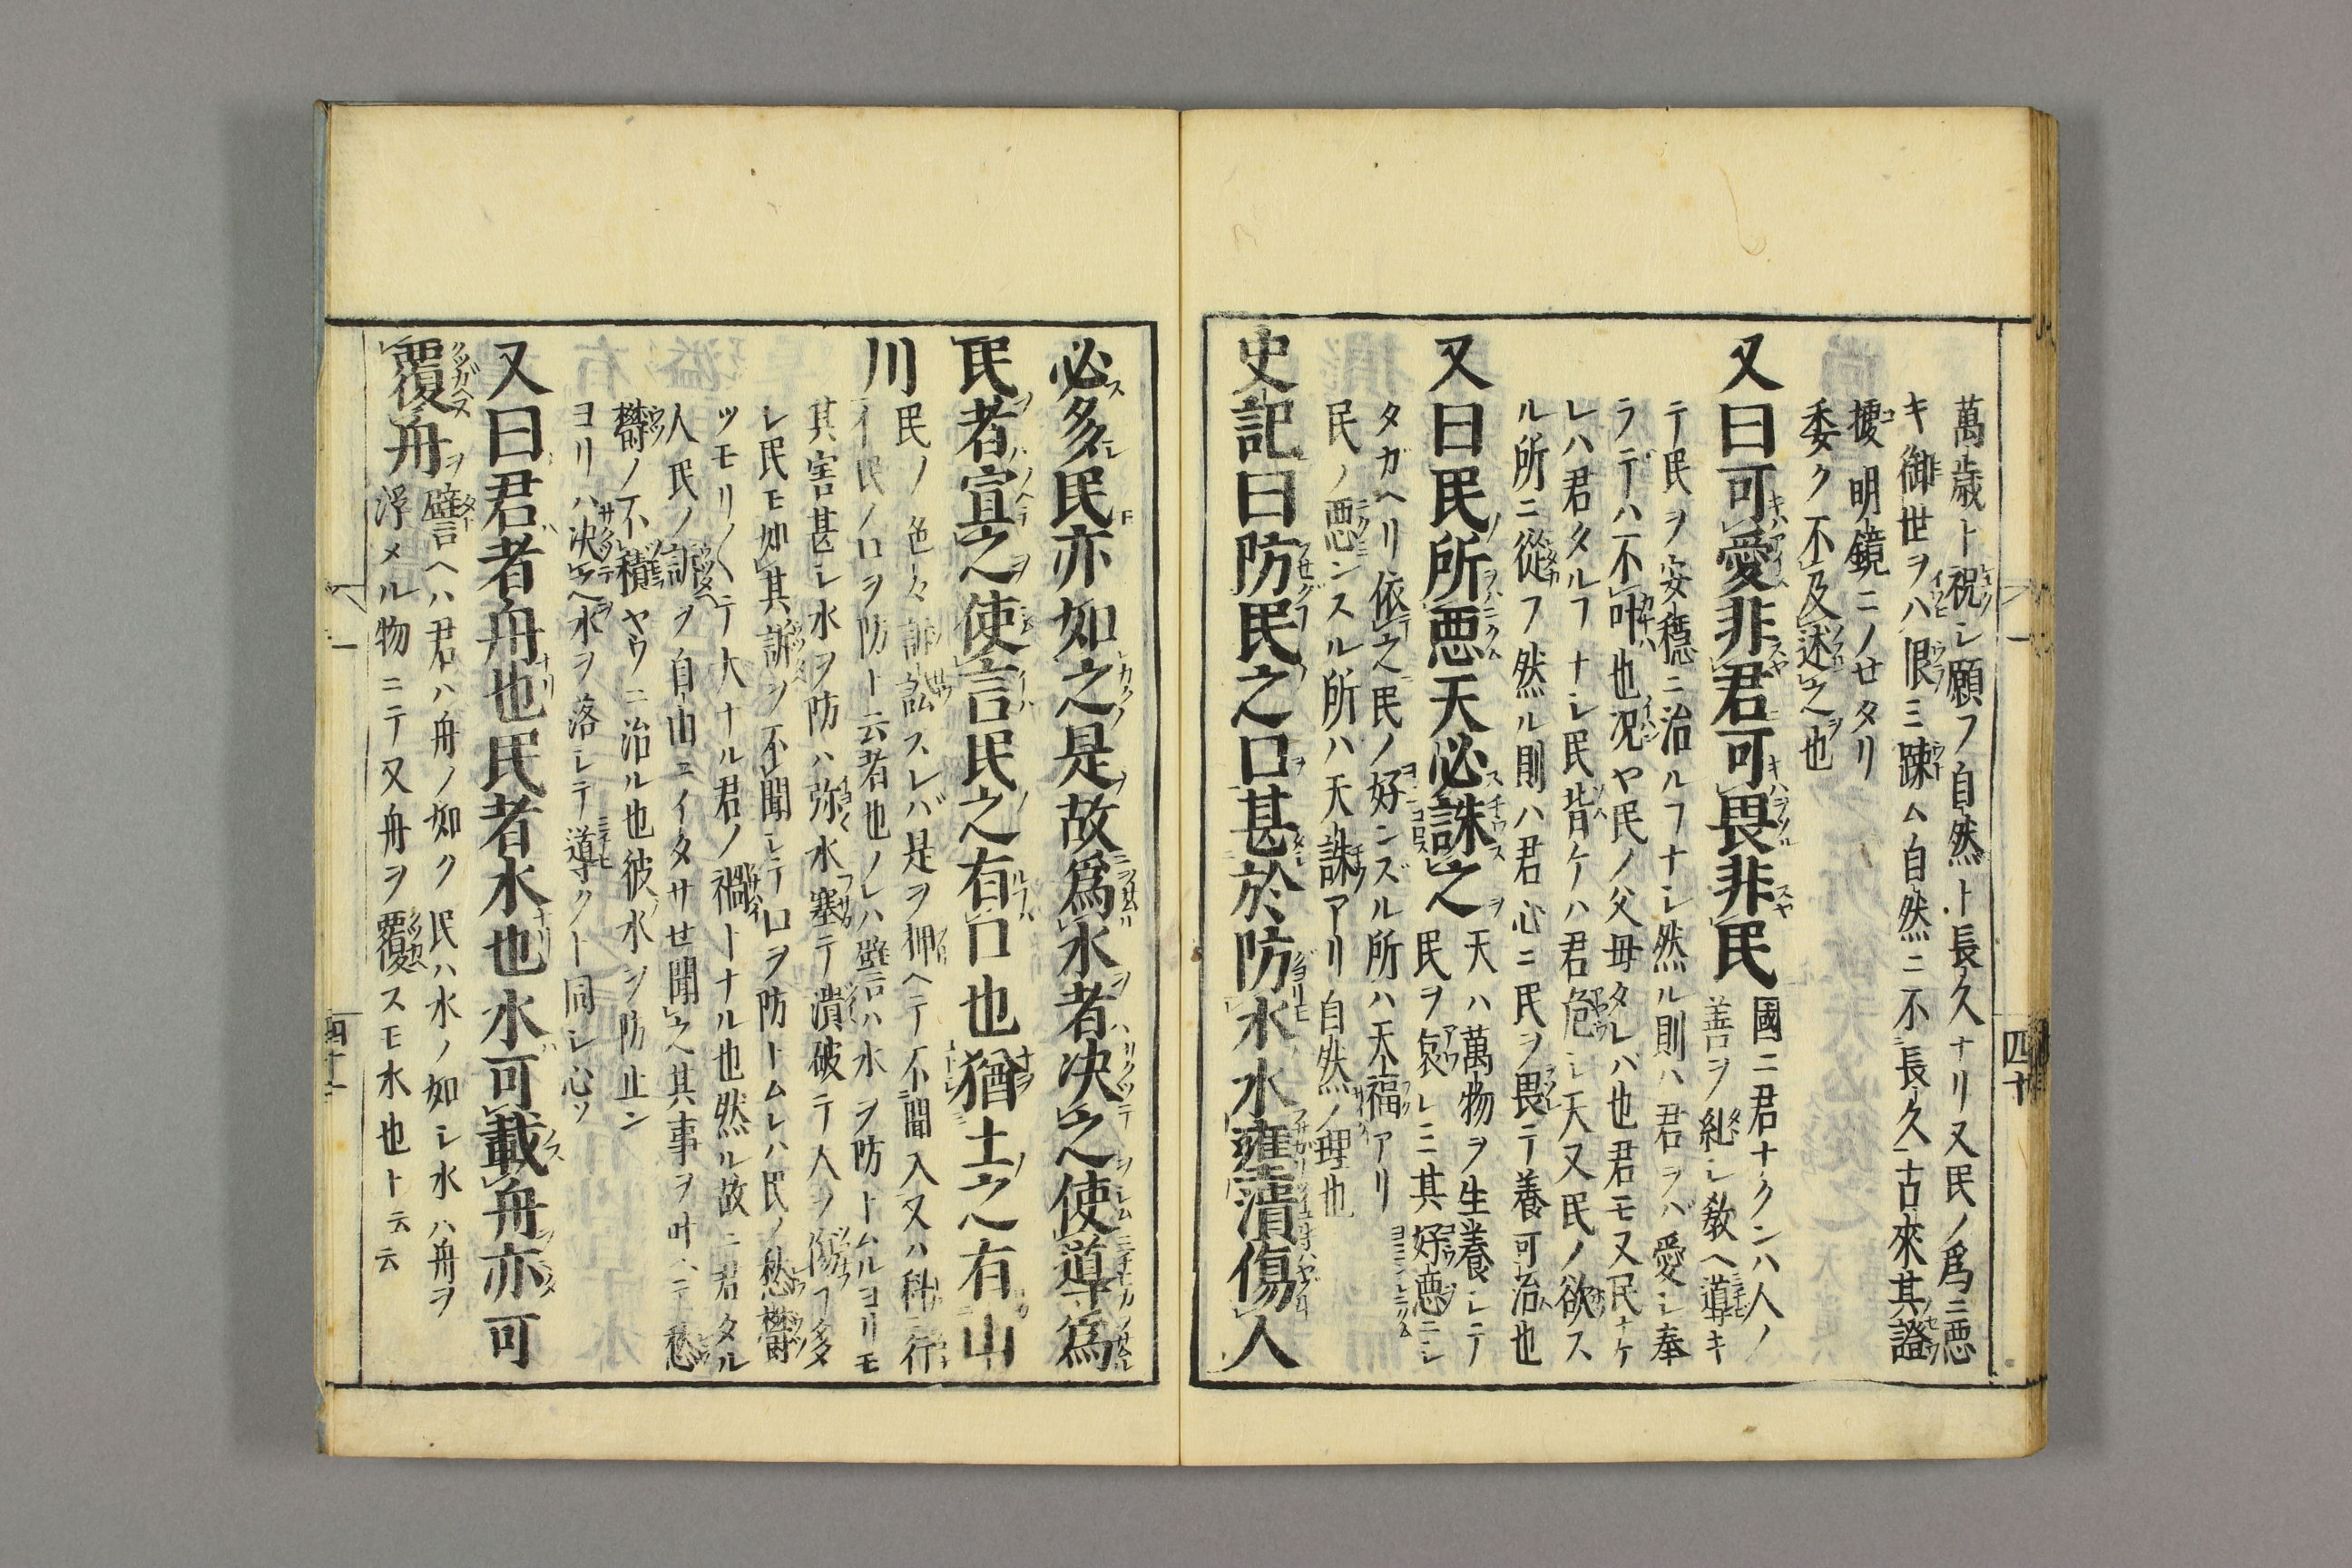 萬歳ト祝シ願フ自然ト長久ナリ又民ノ爲ニ悪
キ御世ヲハ恨ミ踈ム自然ニ不長久古來其證
㯓明鏡ニノセタリ
委ク不及述之也
又曰可愛非君可畏非民
國ニ君ナクンハ人ノ
善ヲ糺シ敎ヘ導キ
テ民ヲ安穩ニ治ルフナシ然ル則ハ君ヲバ愛シ奉
ラデハ不叶也况ヤ民ノ父母タレバ也君モ又民ナケ
レハ君タルフナシ民背ケハ君危シ天又民ノ欲ス
ル所ニ從フ然ル則ハ君心ニ民ヲ畏テ養可治也
又曰民所悪天必誅之
天ハ萬物ヲ生養シテ
民ヲ哀レミ其好悪ニシ
タガヘリ依之民ノ好ンズル所ハ天福アリ
民ノ悪ンスル所ハ天誅アリ自然ノ理也
史記曰防民之口甚於防水水壅潰傷人
四十
必多民亦如之是故爲水者决之使導爲
民者宣之使言民之有口也猶土之有山
川
民ノ色々訴訟スレバ是ヲ押ヘテ不聞入又ハ科ニ行
イ民ノ口ヲ防ト云者也ノレハ譬ハ水ヲ防トムルヨリモ
其害甚シ水ヲ防ハ弥水塞テ潰破テ人ヲ傷フ多
シ民モ如其訴ヲ不聞シテ口ヲ防トムレハ民ノ愁鬱
ツモリ〱テ大ナル君ノ禍トナル也然ル故ニ君タル
人民ノ訴ヲ自由ニイタサせ聞之其事ヲ叶ヘテ愁
鬱ノ不積ヤウニ治ル也彼水ヲ防止ン
ヨリハ决之水ヲ落シテ導クト同シ心ソ
又曰君者舟也民者水也水可載舟亦可
覆舟
譬ヘハ君ハ舟ノ如ク民ハ水ノ如シ水ハ舟ヲ
浮メル物ニテ又舟ヲ覆スモ水也ト云云
四十一